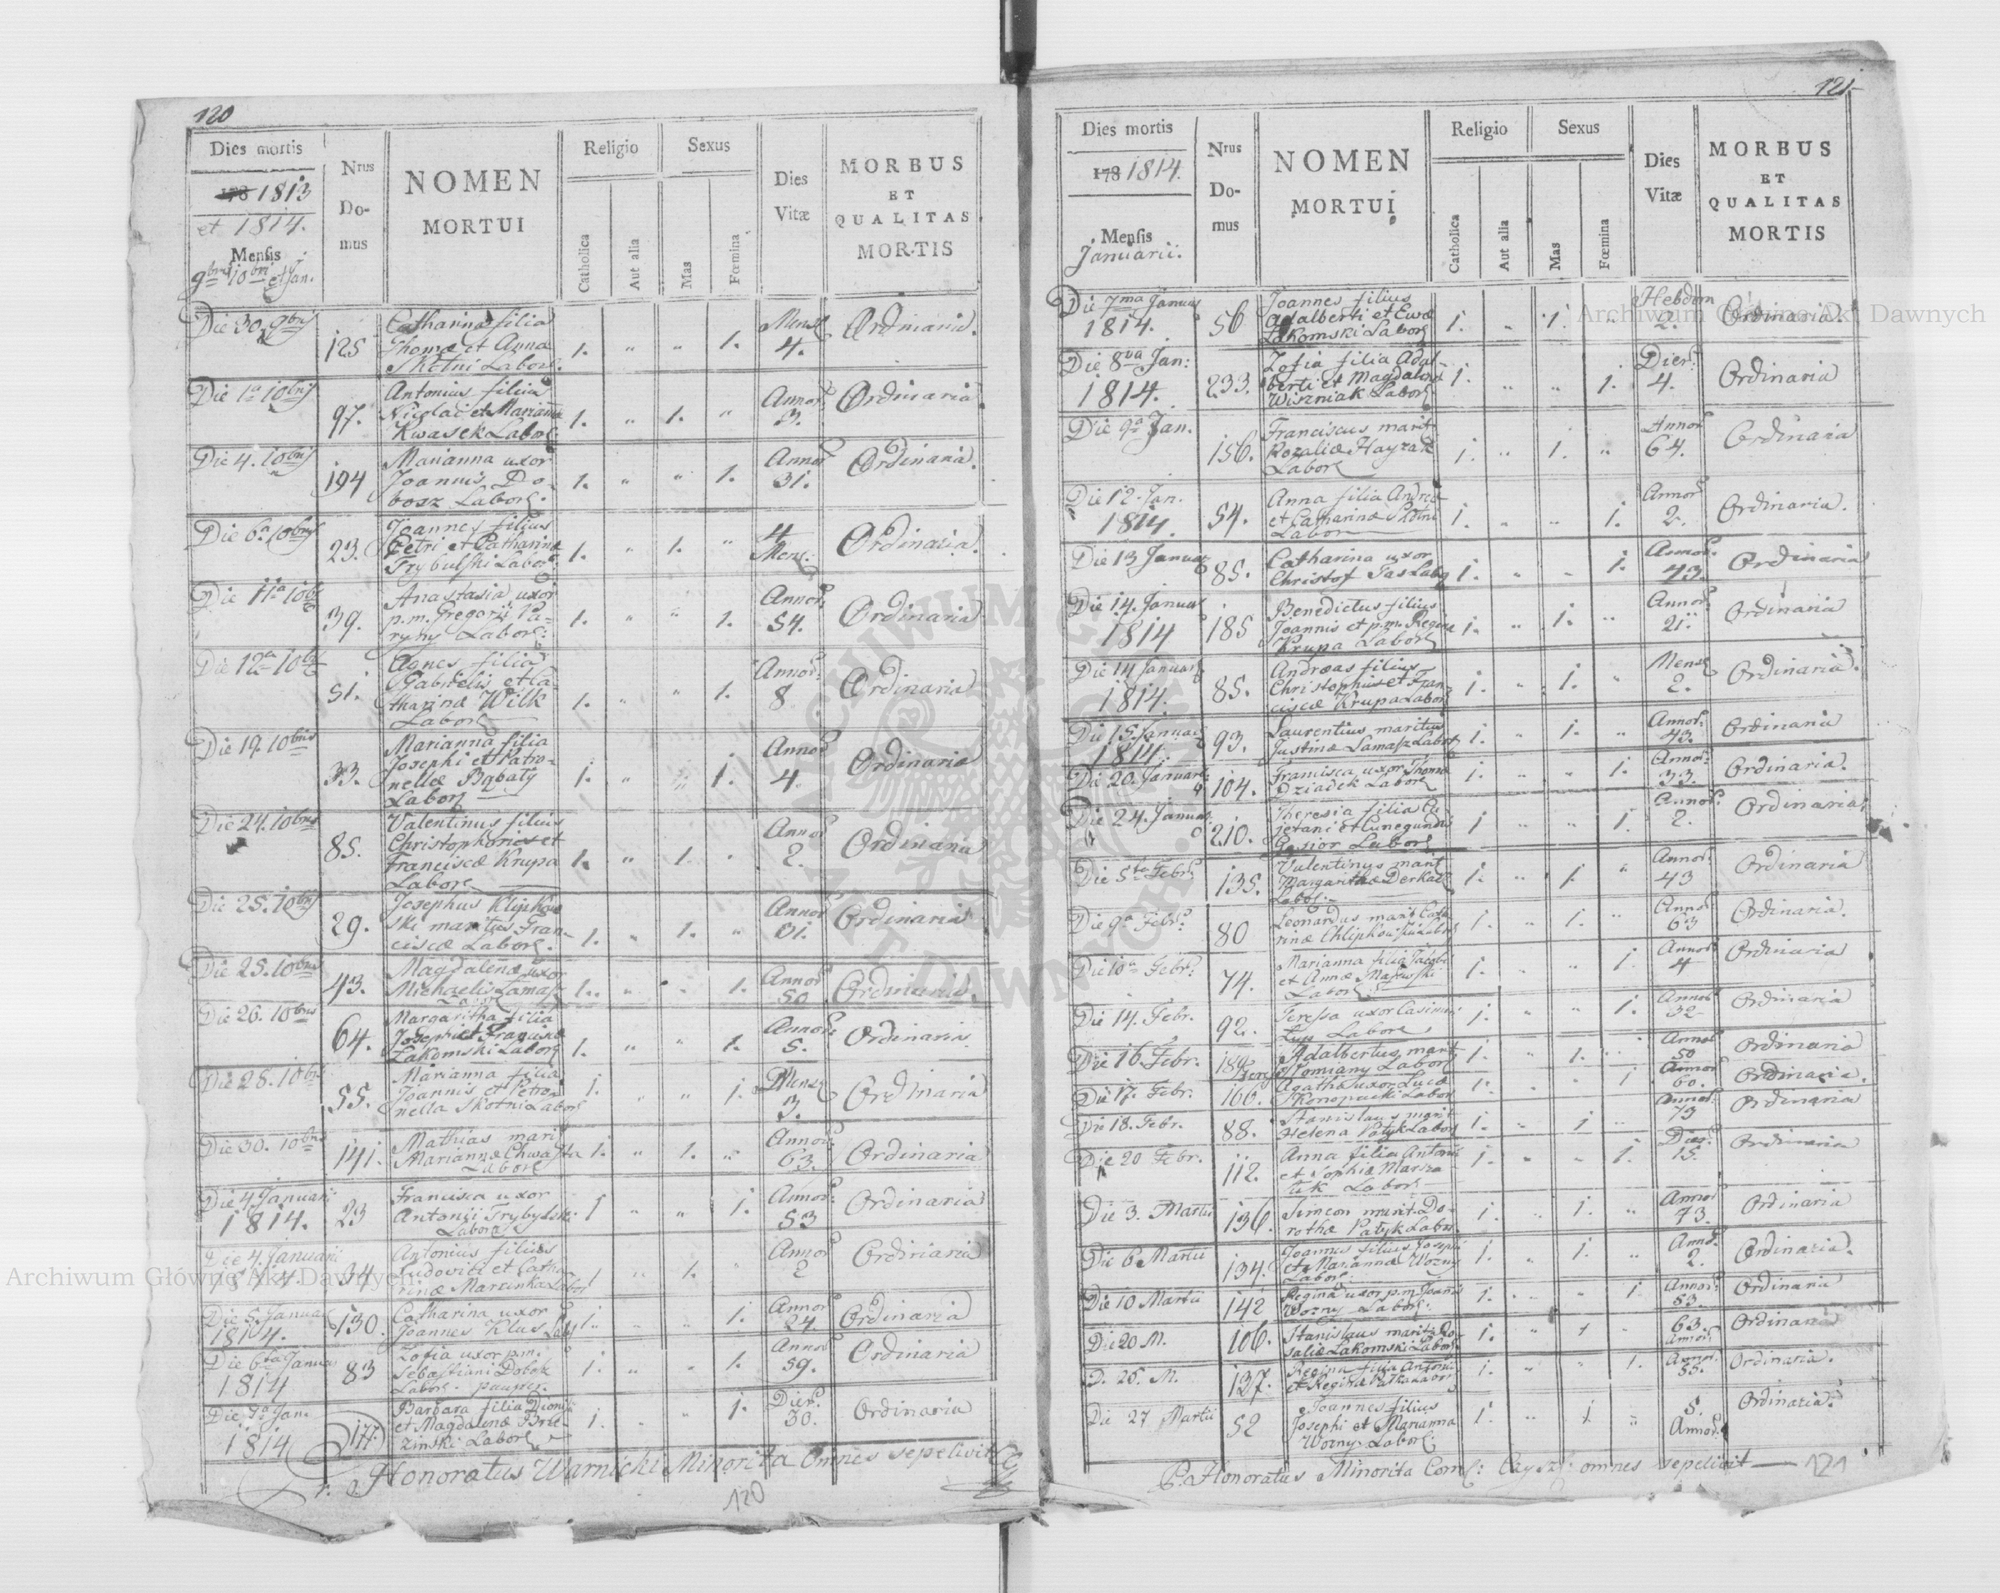 120
Dies mortis
178 1813
et 1814.
Mensis
9bris 10bri et Jan.
Nrus
Do-
mus
NOMEN
MORTUI
Religio
Catholica
Aut alia
Sexus
Mas
Fœmina
Dies
Vitæ
MORBUS
ET
QUALITAS
MORTIS
Die 30. 9bris
125
Catharina filia
Thomæ et Anna
Skotni Labor:
1. " " 1.
Mens
4.
Ordinaria.
Die 1a 10bris
97.
Antonius filius
Nicolai et Marianna
Kwasek Labor
1. " 1. "
Annor
3.
Ordinaria
Die 4. 10bris
194
Marianna uxor
Joannis Do-
bosz Labor.
1. " " 1.
Annor
31.
Ordinaria.
Die 6a 10bris
23.
Joannes filius
Petri et Catharinæ
Trybulski Labor
1. " 1. "
4
Mens:
Ordinaria.
Die 11a 10bris
39.
Anastasia uxor
p.m. Gregorii Pa-
ryny Labor:
1. " " 1.
Annor:
54.
Ordinaria
Die 12a 10bris
51.
Agnes filia
Gabrielis et Ca-
tharinæ Wilk
Labor
1. " " 1.
Annor:
8
Ordinaria
Die 19. 10bris
33.
Marianna filia
Josephi et Petro-
nellæ Bąbaty
Labor
1. " " 1.
Annor
4.
Ordinaria
Die 24. 10bris
85.
Valentinus filius
Christophori et
Franciscæ Krupa
Labor
1. " 1. "
Annor
2.
Ordinaria
Die 25. 10bris
29.
Josephus Klipkow
ski maritus Fran-
ciscæ Labor.
1. " 1. "
Annor
31.
Ordinaria
Die 25. 10bris
43.
Magdalena uxor
Michaelis Lamasz
Labor
1. " " 1.
Annor
50
Ordinaria.
Die 26. 10bris
64.
Margaritha filia
Josephi et
Lakomski Labor
1. " " 1.
Annor:
5.
Ordinaria.
Die 28. 10bris
55.
Marianna filia
Joannis et Petro-
nella Skotni Labor
1. " " 1.
Mens
3.
Ordinaria
Die 30. 10bris
141.
Mathias mari
Marianna Chwasta
Labor
1. " 1. "
Annor:
63.
Ordinaria
Die 4 Januarii
1814.
23
Francisca uxor
Antonii Trybylski
Labor
1 " " 1.
Annor:
53
Ordinaria
Die 4. Januarii
1814
34
Antonius filius
Ludovici et Catha-
rinæ Marcinka Labor
1 " 1. "
Annor
2
Ordinaria
Die 5. Januar
1814.
130.
Catharina uxor
Joannis Klus Lab
1. " " 1.
Annor
24.
Ordinaria
Die 6ta Januar
1814
83
Zofia uxor p.m.
Sebastiani Dobek
Labor. pauper.
1. " " 1.
Annor
59.
Ordinaria
Die 7a Jan.
1814
177
Barbara filia Dionisii
et Magdalenæ Brze-
zinski Labor
1. " " 1.
Dier
30.
Ordinaria
Honoratus Warnicki Minorita omnes sepelivit
120
121
Dies mortis
178 1814.
Mensis
Januarii.
Nrus
Do-
mus
NOMEN
MORTUI
Religio
Catholica
Aut alia
Sexus
Mas
Fœmina
Dies
Vitæ
MORBUS
ET
QUALITAS
MORTIS
Die 7ma Januar
1814.
56
Joannes filius
Adalberti et Ewæ
Lakomski Labor
1. " 1. "
Hebdom
2.
Ordinaria.
Die 8va Jan:
1814.
233.
Zofia filia Adal-
berti et Magdalena
Wiszniak Labor
1. " " 1.
Dier
4.
Ordinaria
Die 9a Jan.
156.
Franciscus marit
Rozaliæ Hayzak
Labor
1. " 1. "
Annor
64.
Ordinaria
Die 12. Jan.
1814.
54.
Anna filia Andreæ
et Catharinæ Skotni
Labor
1. " " 1.
Annor
2.
Ordinaria.
Die 13 Januar
85.
Catharina uxor
Christof Jas Labor
1. " " 1.
Annor:
43.
Ordinaria
Die 14. Januar
1814
185
Benedictus filius
Joannis et p.m. Regina
Krupa Labor
1. " 1. "
Annor:
21.
Ordinaria
Die 14 Januar
1814.
85.
Andreas filius
Christophori et Fran-
ciscæ Krupa Labor
1. " 1. "
Mens
2.
Ordinaria.
Die 15. Januar
1814.
93.
Laurentius maritus
Justinæ Lamasz Labor
1. " 1. "
Annor:
43.
Ordinaria
Die 20. Januarii
104.
Francisca uxor Thomæ
Dziadek Labor
1. " " 1.
Annor:
33.
Ordinaria.
Die 24. Januar
210.
Theresia filia Ca-
jetani et Cunegundis
Gąsior Labor
1 " " 1.
Annor:
2.
Ordinaria
Die 5ta Febr.
135.
Valentinus marit
Margaritha Derkacz
Labor.
1. " 1. "
Annor:
43
Ordinaria
Die 9a Febr.
80
Leonardus marit Catha-
rinæ Chlipkowski Labor
1. " 1. "
Annor
63
Ordinaria.
Die 10a Febr.
74.
Marianna filia Jacobi
et Annæ
Labor
1. " " 1.
Annor
4
Ordinaria
Die 14. Febr.
92.
Teressa uxor Casimiri
Lup Labor
1. " " 1.
Annor
32
Ordinaria
Die 16. Febr.
189
Adalbertus marit
Słomiany Labor
1. " 1. "
Annor
50
Ordinaria
Die 17. Febr.
166.
Agatha uxor Lucæ
Skonopnicki Labor
1. " " 1
Annor
60.
Ordinaria.
Die 18. Febr.
88.
Stanislaus marit
Helena Patyk Labor
1. " 1 "
Annor:
73
Ordinaria
Die 20 Febr.
112.
Anna filia Antonii
et Sophiæ Marsza
tik Labor
1. " " 1.
Dier
15.
Ordinaria
Die 3. Martii
136.
Simeon marit. Do-
rothæ Patyk Labor.
1. " 1. "
Annor
73.
Ordinaria
Die 6 Martii
134.
Joannes filius Josephi
et Mariannæ Wozny
Labor
1. " 1. "
Annor.
2.
Ordinaria.
Die 10 Martii
142
Regina uxor p.m. Joannis
Wozny Labor.
1. " " 1.
Annor:
53.
Ordinaria
Die 20 M.
106.
Stanislaus marit. Ro-
saliæ Lakomski Labor.
1. " 1 "
63.
Annor.
Ordinaria
D. 26. M.
127.
Regina filia Antonii
et Reginæ Labor
1. " " 1.
Annor
55.
Ordinaria.
Die 27 Martii
52
Joannes filius
Josephi et Marianna
Wozny Labor
1. " 1 "
5.
Annor.
Ordinaria.
P. Honoratus Minorita omnes sepelivit — 121
Archiwum Główne Akt Dawnych
Archiwum Główne Akt Dawnych
ARCHIWUM GŁÓWNE AKT DAWNYCH